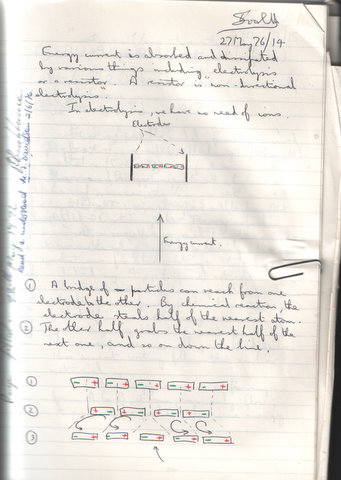 27 May 76/14
Energy current is absorbed and dissipated
by various things including "electrolysis
or a resistor. A resistor is non-directional
electrolysis."
In electrolysis, we have no need of ions.
Electrodes
- + - + - + - + - +
Energy current.
① A bridge of particles can reach from one
electrode to the other. By chemical reaction, the
electrodes steals half of the nearest atom.
② The other half grabs the nearest half of the
next one, and so on down the line.
① - + - + - + - + - +
② + - + - + - + -
③ - + - + - + - + - +
Read & understood
2/6/76